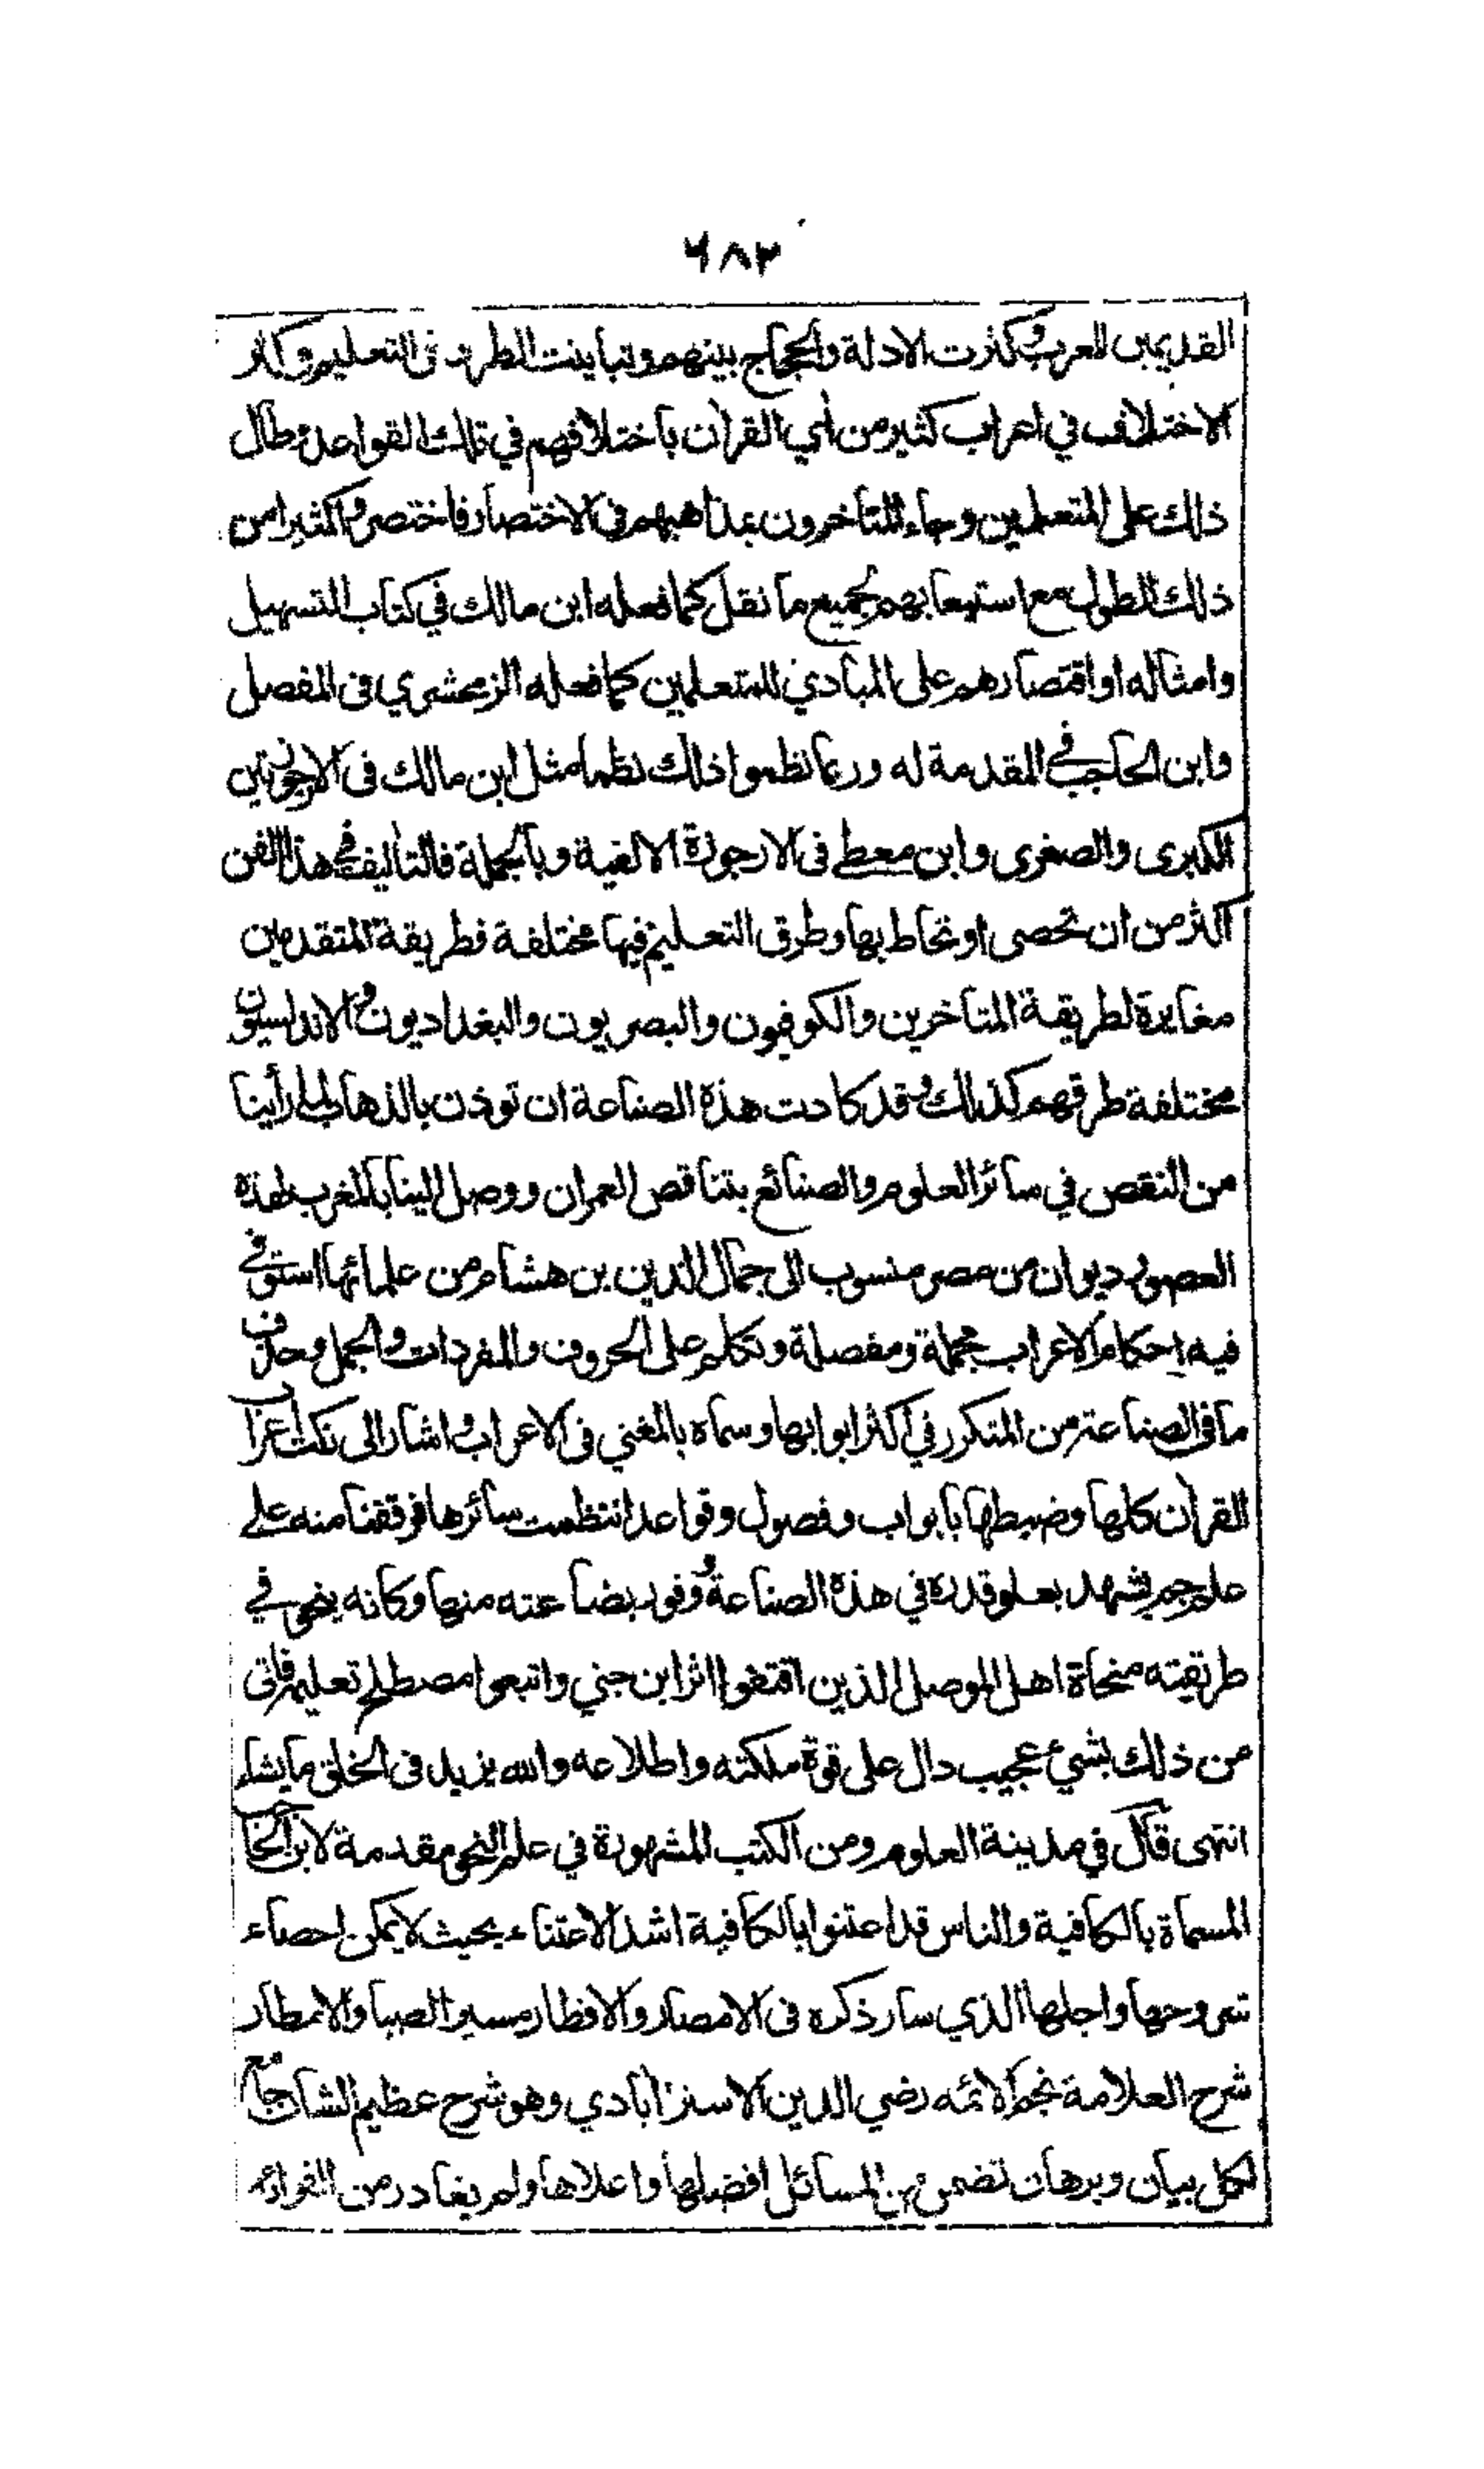 ٦٨٢
القديمين للعرب وكثرت الادلة والحجاج بينهم وتباينت الطرق فى التعليم وكثر
الاختلاف في اعراب كثير من أي القرآن باختلافهم في تلك القواعد وطال
ذلك على المتعلمين وجاء المتاخرون بمذاهبهم فى الاختصار فاختصروا كثيرا من
ذلك الطول مع استيعابهم لجميع ما نقل كما فعله ابن مالك في كتاب التسهيل
وامثاله او اقتصارهم على المبادي للمتعلمين كما فعله الزمخشري فى المفصل
وابن الحاجب في المقدمة له وربما نظموا ذلك نظما مثل ابن مالك فى الارجوزتين
الكبرى والصغرى وابن معط فى الارجوزة الالفية وبالجملة فالتأليف في هذا الفن
اكثر من ان تحصى او تحاط بها وطرق التعليم فيها مختلفة فطريقة المتقدمين
مغايرة لطريقة المتاخرين والكوفيون والبصريون والبغداديون والاندلسيون
مختلفة طرقهم كذلك وقد كادت هذه الصناعة ان توذن بالذهاب لما رأينا
من النقص في سائر العلوم والصنائع بتناقص العمران ووصل الينا بالمغرب لهذه
العصور ديوان من مصر منسوب الى جمال الدين بن هشام من علمائها استوفى
فيه احكام الاعراب مجملة ومفصلة وتكلم على الحروف والمفردات والجمل وحذف
ما فى الصناعة من المتكرر في اكثر ابوابها وسماه بالمغني فى الاعراب واشار الى نكت اعراب
القرآن كلها وضبطها بابواب وفصول وقواعد انتظمت سائرها فوقفنا منه على
علم جم يشهد بعلو قدره في هذه الصناعة ووفور بضاعته منها وكانه ينحى في
طريقته منحاة اهل الموصل الذين اقتفوا اثر ابن جني واتبعوا مصطلح تعليمه فاتى
من ذلك بشيء عجيب دال على قوة ملكته واطلاعه والله يزيد فى الخلق ما يشاء
انتهى قال في مدينة العلوم ومن الكتب المشهورة في علم النحو مقدمة لابن الحاجب
المسماة بالكافية والناس قد اعتنوا بالكافية اشد الاعتناء بحيث لا يمكن احصاء
شروحها واجلها الذي سار ذكره فى الامصار والاقطار مسير الصبا والامطار
شرح العلامة نجم الائمه رضي الدين الاسترابادي وهو شرح عظيم الشان جامع
لكل بيان وبرهان تضمن من المسائل افضلها واعلاها ولم يغادر من الفوائد